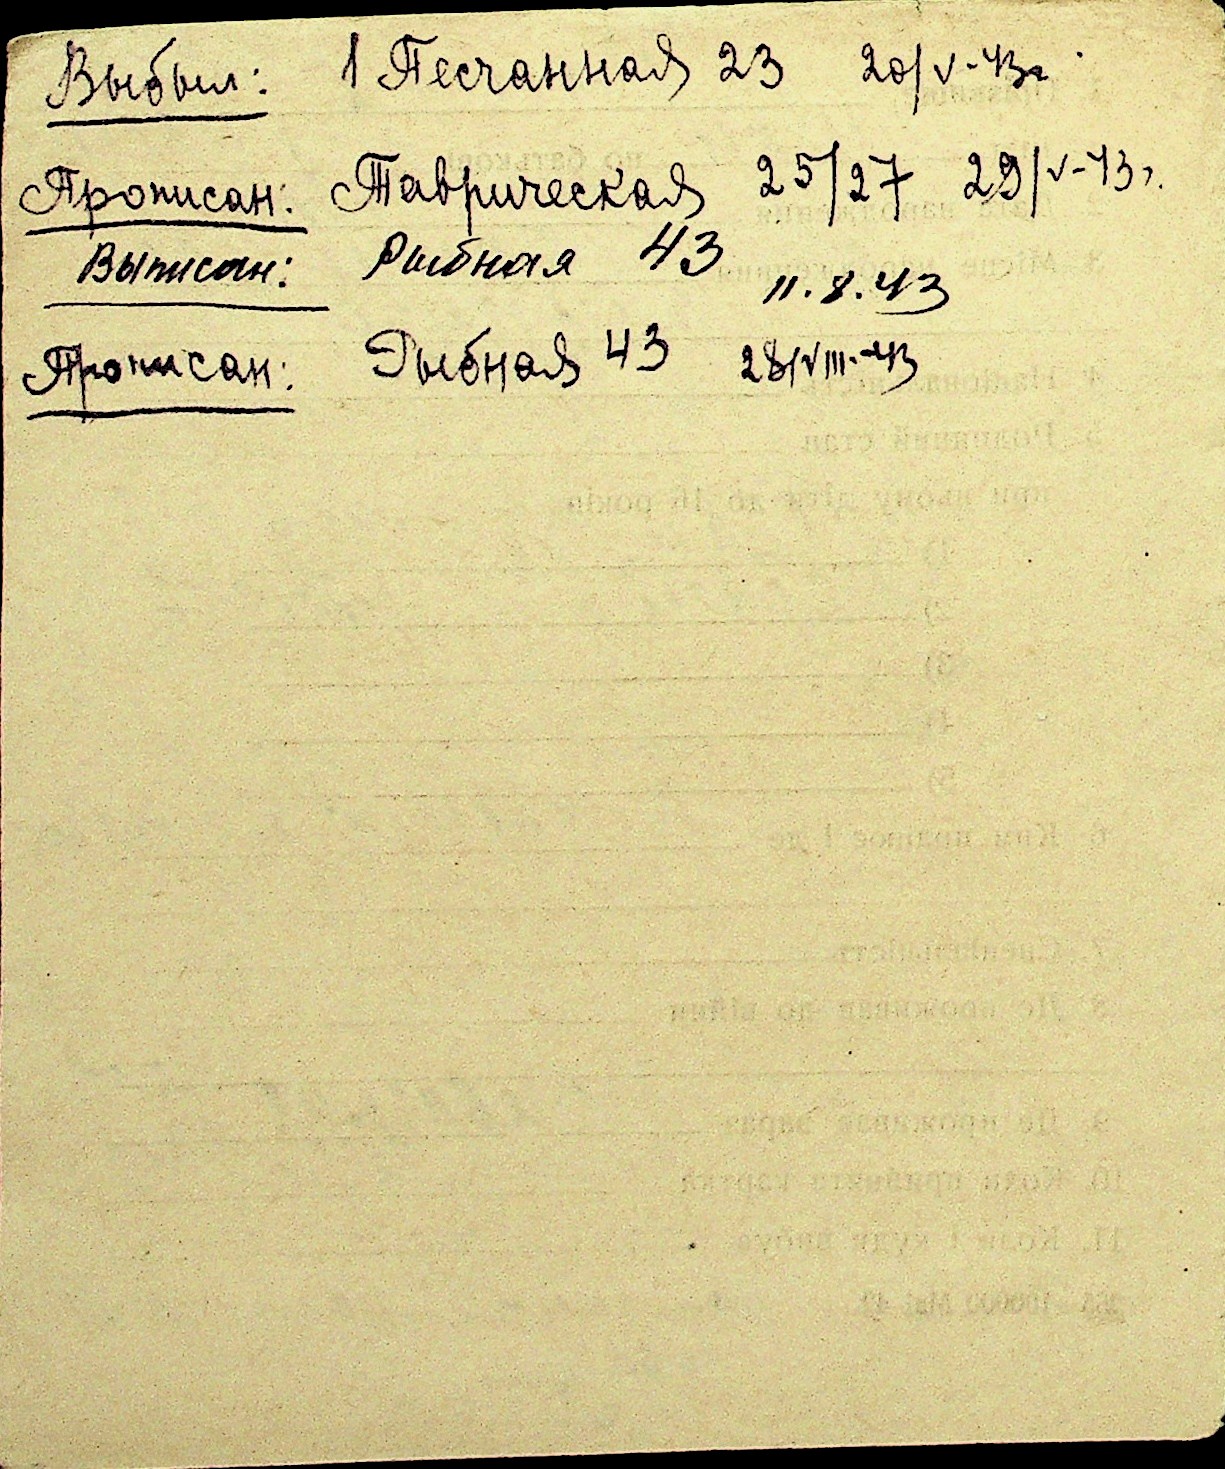 Выбыл: 1 Песчанная 23 20/V-43г
Прописан: Таврическая 25/27 29/V-43г.
Выписан: Рыбная 43 11.8.43
Прописан: Рыбная 43 28/VIII-43